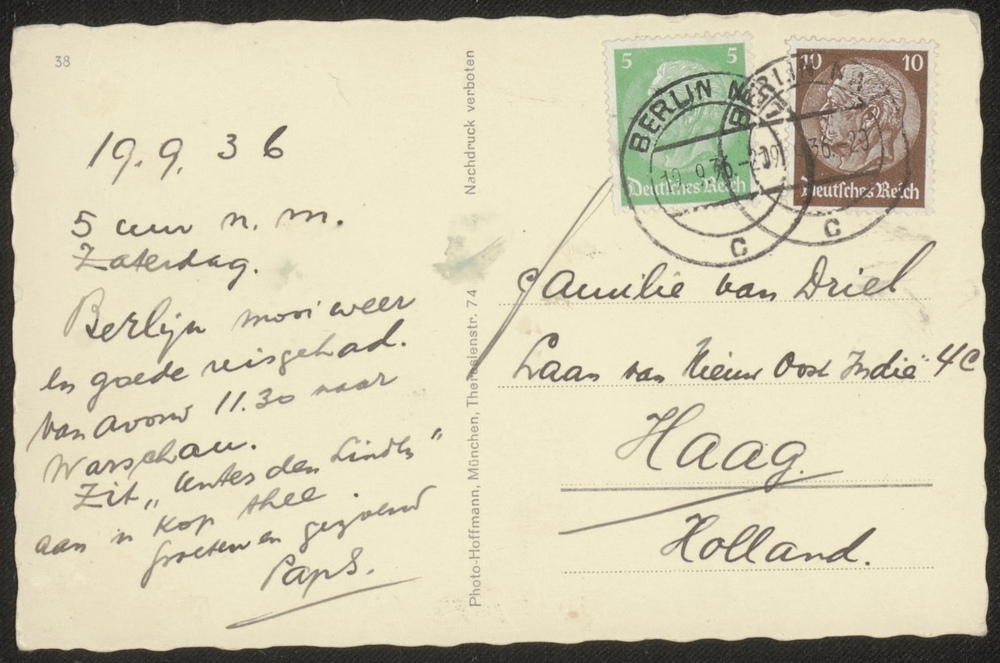 38
19.9.36
5 uur n. m.
Zaterdag.
Berlijn mooi weer
en goede reis gehad.
Van avond 11.30 naar
Warschau.
Zit „Unter den Linden"
aan 'n kop thee
Groeten en gezoend
PapS.
Photo-Hoffmann, München, Theresienstr. 74 Nachdruck verboten
5 5
Deutsches Reich
10 10
Deutsches Reich
BERLIN
19.9.36.-20
C
BERLIN
36.-20
C
Familie van Driel
Laan van Nieuw Oost Indië 4C
Haag.
Holland.